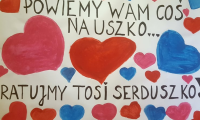 POWIEMY WAM COŚ
NA USZKO...
RATUJMY TOSI SERDUSZKO!